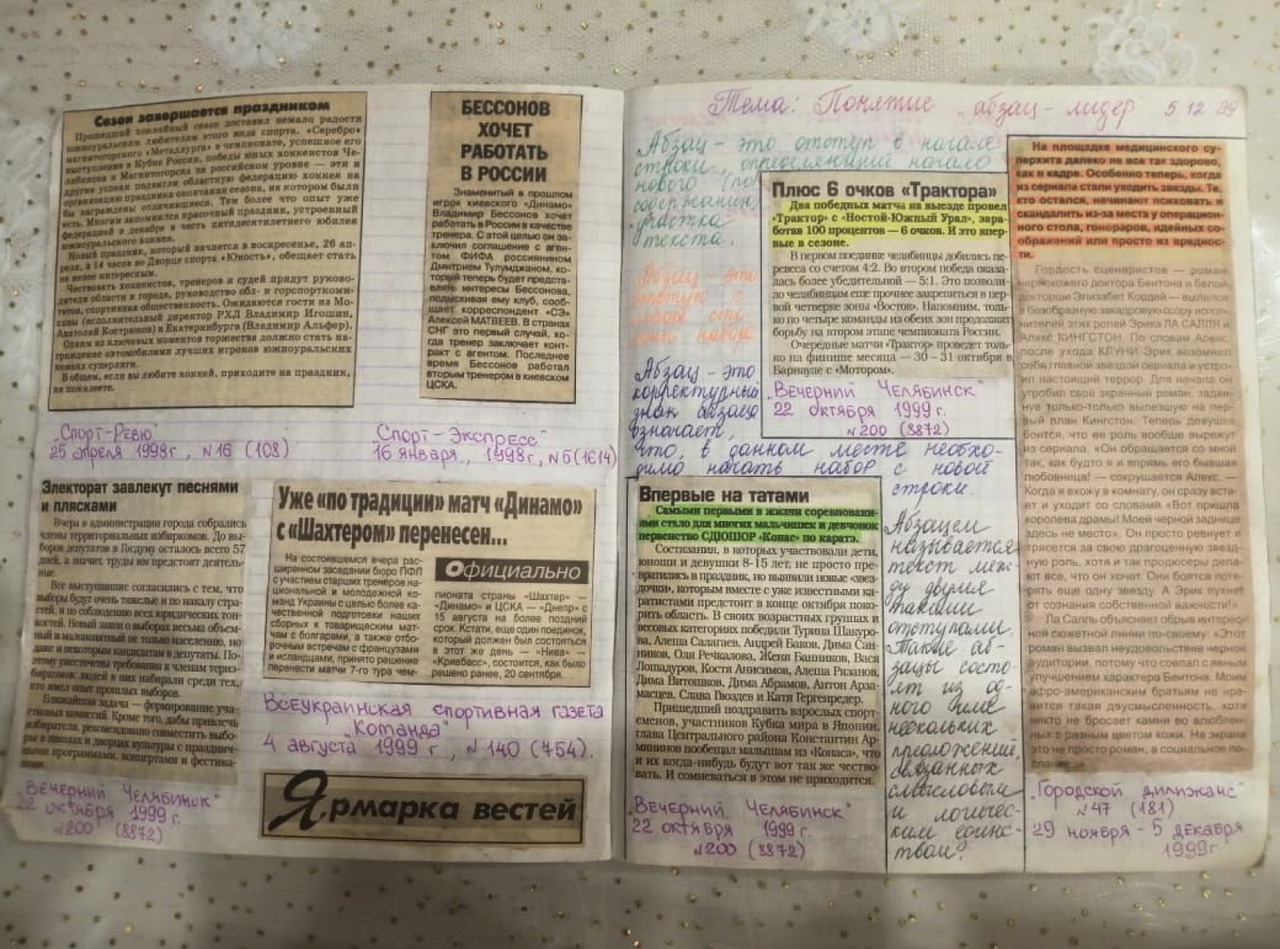 Сезон завершается праздником
Прошедший хоккейный сезон доставил немало радости
южноуральским любителям этого вида спорта. «Серебро»
магнитогорского «Металлурга» в чемпионате, успешное его
выступление в Кубке России, победы юных хоккеистов Че-
лябинска и Магнитогорска на российском уровне — эти и
другие успехи подвигли областную федерацию хоккея на
организацию праздника окончания сезона, на котором были
бы награждены отличившиеся. Тем более что опыт уже
есть. Многим запомнился красочный праздник, устроенный
федерацией в декабре в честь пятидесятилетнего юбилея
южноуральского хоккея.
Новый праздник, который начнется в воскресенье, 26 ап-
реля, в 14 часов во Дворце спорта «Юность», обещает стать
не менее интересным.
Чествовать хоккеистов, тренеров и судей придут руково-
дители области и города, руководство обл- и горспорткоми-
тетов, спортивная общественность. Ожидаются гости из Мо-
сквы (исполнительный директор РХЛ Владимир Игошин,
Анатолий Костриков) и Екатеринбурга (Владимир Альфер).
Одним из ключевых моментов торжества должно стать на-
граждение автомобилями лучших игроков южноуральских
команд суперлиги.
В общем, если вы любите хоккей, приходите на праздник,
не пожалеете.
„Спорт-Ревю“
25 апреля 1998г., №16 (108)
БЕССОНОВ
ХОЧЕТ
РАБОТАТЬ
В РОССИИ
Знаменитый в прошлом
игрок киевского «Динамо»
Владимир Бессонов хочет
работать в России в качестве
тренера. С этой целью он за-
ключил соглашение с аген-
том ФИФА россиянином
Дмитрием Тулумджаном, ко-
торый теперь будет предста-
влять интересы Бессонова,
подыскивая ему клуб, сооб-
щает корреспондент «СЭ»
Алексей МАТВЕЕВ. В странах
СНГ это первый случай, ко-
гда тренер заключает конт-
ракт с агентом. Последнее
время Бессонов работал
вторым тренером в киевском
ЦСКА.
„Спорт-Экспресс“
16 января, 1998г., №5 (1614)
Электорат завлекут песнями
и плясками
Вчера в администрации города собрались
члены территориальных избиркомов. До вы-
боров депутатов в Госдуму осталось всего 57
дней, а значит, труды им предстоят деятель-
ные.
Все выступавшие согласились с тем, что
выборы будут очень тяжелые и по накалу стра-
стей, и по соблюдению всех юридических тон-
костей. Новый закон о выборах весьма объем-
ный и малопонятный не только населению, но
даже и некоторым кандидатам в депутаты. По-
этому ужесточены требования к членам териз-
биркомов: людей в них набирали среди тех,
кто имел опыт прошлых выборов.
Ближайшая задача — формирование учас-
тковых комиссий. Кроме того, дабы привлечь
избирателя, рекомендовано совместить выбо-
ры в школах и дворцах культуры с празднич-
ными программами, концертами и фестива-
лями.
„Вечерний Челябинск“
22 октября 1999г.
№200 (8872)
Уже «по традиции» матч «Динамо»
с «Шахтером» перенесен...
На состоявшемся вчера рас-
ширенном заседании бюро ПФЛ
с участием старших тренеров на-
циональной и молодежной ко-
манд Украины с целью более ка-
чественной подготовки наших
сборных к товарищеским мат-
чам с болгарами, а также отбо-
рочным встречам с французами
и исландцами, принято решение
перенести матчи 7-го тура чем-
Официально
пионата страны «Шахтер» —
«Динамо» и ЦСКА — «Днепр» с
15 августа на более поздний
срок. Кстати, еще один поединок,
который должен был состояться
в этот же день — «Нива» —
«Кривбасс», состоится, как было
решено ранее, 20 сентября.
Всеукраинская спортивная газета
„Команда“
4 августа 1999 г., №140 (754).
Ярмарка вестей
Тема: Понятие „абзац-лидер 5.12.99
Абзац - это отступ в начале
строки, определяющий начало
нового
содержанию
участка
текста.
Абзац - это
отступ с
Абзац - это
корректурный
знак абзаца
означает,
что, в данном месте необхо-
димо начать набор с новой
строки.
Плюс 6 очков «Трактора»
Два победных матча на выезде провел
«Трактор» с «Ностой-Южный Урал», зара-
ботав 100 процентов — 6 очков. И это впер-
вые в сезоне.
В первом поединке челябинцы добились пе-
ревеса со счетом 4:2. Во втором победа оказа-
лась более убедительной — 5:1. Это позволи-
ло челябинцам еще прочнее закрепиться в пер-
вой четверке зоны «Восток». Напомним, толь-
ко по четыре команды из обеих зон продолжат
борьбу на втором этапе чемпионата России.
Очередные матчи «Трактор» проведет толь-
ко на финише месяца — 30 – 31 октября в
Барнауле с «Мотором».
„Вечерний Челябинск“
22 октября 1999 г.
№200 (8872)
Впервые на татами
Самыми первыми в жизни соревновани-
ями стало для многих мальчишек и девчонок
первенство СДЮШОР «Конас» по каратэ.
Состязания, в которых участвовали дети,
юноши и девушки 8-15 лет, не просто пре-
вратились в праздник, но выявили новые «звез-
дочки», которым вместе с уже известными ка-
ратистами предстоит в конце октября поко-
рить область. В своих возрастных группах и
весовых категориях победили Турина Шакуро-
ва, Алеша Салагаев, Андрей Баков, Дима Сан-
ников, Оля Речкалова, Женя Банников, Вася
Лошадуров, Костя Анисимов, Алеша Рязанов,
Дима Витошкин, Дима Абрамов, Антон Арза-
масцев, Слава Гвоздев и Катя Гергенредер.
Пришедший поздравить взрослых спорт-
сменов, участников Кубка мира в Японии,
глава Центрального района Константин Ар-
мининов пообещал малышам из «Конаса», что
и их когда-нибудь будут вот так же чество-
вать. И сомневаться в этом не приходится.
„Вечерний Челябинск“
22 октября 1999г.
№200 (8872)
Абзацем
называется
текст меж-
ду двумя
такими
отступами.
Такие аб-
зацы состо-
ят из од-
ного или
нескольких
предложений,
связанных
смысловым
и логичес-
ким единс-
твом.
На площадке медицинского су-
перхита далеко не все так здорово,
как в кадре. Особенно теперь, когда
из сериала стали уходить звезды. Те,
кто остался, начинают психовать и
скандалить из-за места у операцион-
ного стола, гонораров, идейных со-
ображений или просто из вреднос-
ти.
Гордость сценаристов — роман
чернокожего доктора Бентона и белой
докторши Элизабет Кордей — вылился
в безобразную закадровую ссору испол-
нителей этих ролей Эрика ЛА САЛЛЯ и
Алекс КИНГСТОН. По словам Алекс,
после ухода КЛУНИ Эрик возомнил
себя главной звездой сериала и устро-
ил настоящий террор. Для начала он
угробил свой экранный роман, задви-
нув только-только вылезшую на пер-
вый план Кингстон. Теперь девушка
боится, что ее роль вообще вырежут
из сериала. «Он обращается со мной
так, как будто я и впрямь его бывшая
любовница! — сокрушается Алекс. —
Когда я вхожу в комнату, он сразу вста-
ет и уходит со словами «Вот пришла
королева драмы! Моей черной заднице
здесь не место». Он просто ревнует и
трясется за свою драгоценную звезд-
ную роль, хотя и так продюсеры дела-
ют все, что он хочет. Они боятся поте-
рять еще одну звезду. А Эрик пухнет
от сознания собственной важности!»
Ла Салль объясняет обрыв интерес-
ной сюжетной линии по-своему: «Этот
роман вызвал неудовольствие черной
аудитории, потому что совпал с явным
улучшением характера Бентона. Моим
афро-американским братьям не нра-
вится такая двусмысленность, хотя
никто не бросает камни во влюблен-
ных с разным цветом кожи. На экране
это не просто роман, а социальное по-
слание».
„Городской дилижанс“
№47 (181)
29 ноября - 5 декабря
1999г